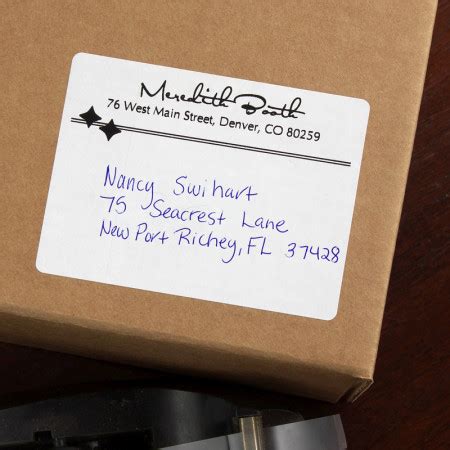 Meredith Booth
76 West Main Street, Denver, CO 80259
Nancy Swihart
75 Seacrest Lane
New Port Richey, FL 37428